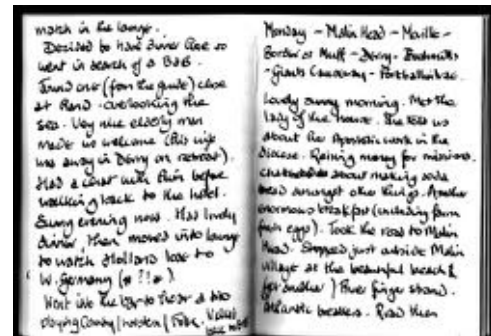 match in the lounge.
Decided to have dinner there so
went in search of a B&B.
Found one (from the guide) close
at hand - overlooking the
sea. Very nice elderly man
made us welcome (his wife
was away in Derry on retreat).
Had a chat with him before
walking back to the hotel.
Sunny evening now. Had lovely
dinner, then moved into lounge
to watch Holland lose to
W. Germany (*!!*).
Went into the bar to hear a duo
playing Country/western/Folk.
Monday - Malin Head - Moville -
Border at Muff - Derry - Bushmills
- Giants Causeway - Portballintrae.
Lovely sunny morning. Met the
lady of the house. She told us
about her Apostolic work in the
diocese. Raising money for missions.
about making soda
bread amongst other things. Another
enormous breakfast (including farm
fresh eggs). Took the road to Malin
Head. Stopped just outside Malin
village at the beautiful beach &
(yet another) Five finger strand.
Atlantic breakers. Road then